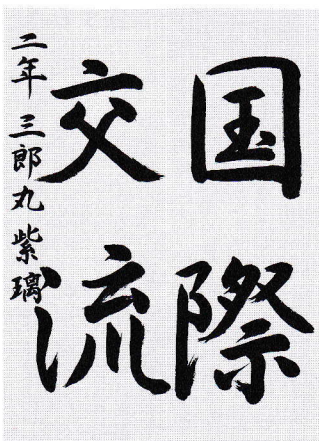 国際
交流
二年 三郎丸 紫璃